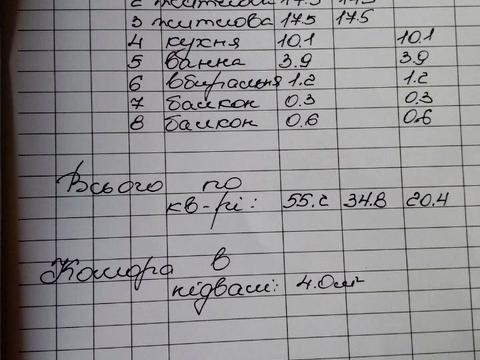 2 житлова 17.3
3 житлова 17.5 17.5
4 кухня 10.1 10.1
5 ванна 3.9 3.9
6 вбиральня 1.2 1.2
7 балкон 0.3 0.3
8 балкон 0.6 0.6
Всього по
кв-рі: 55.2 34.8 20.4
Комора в
підвалі: 4.0м²